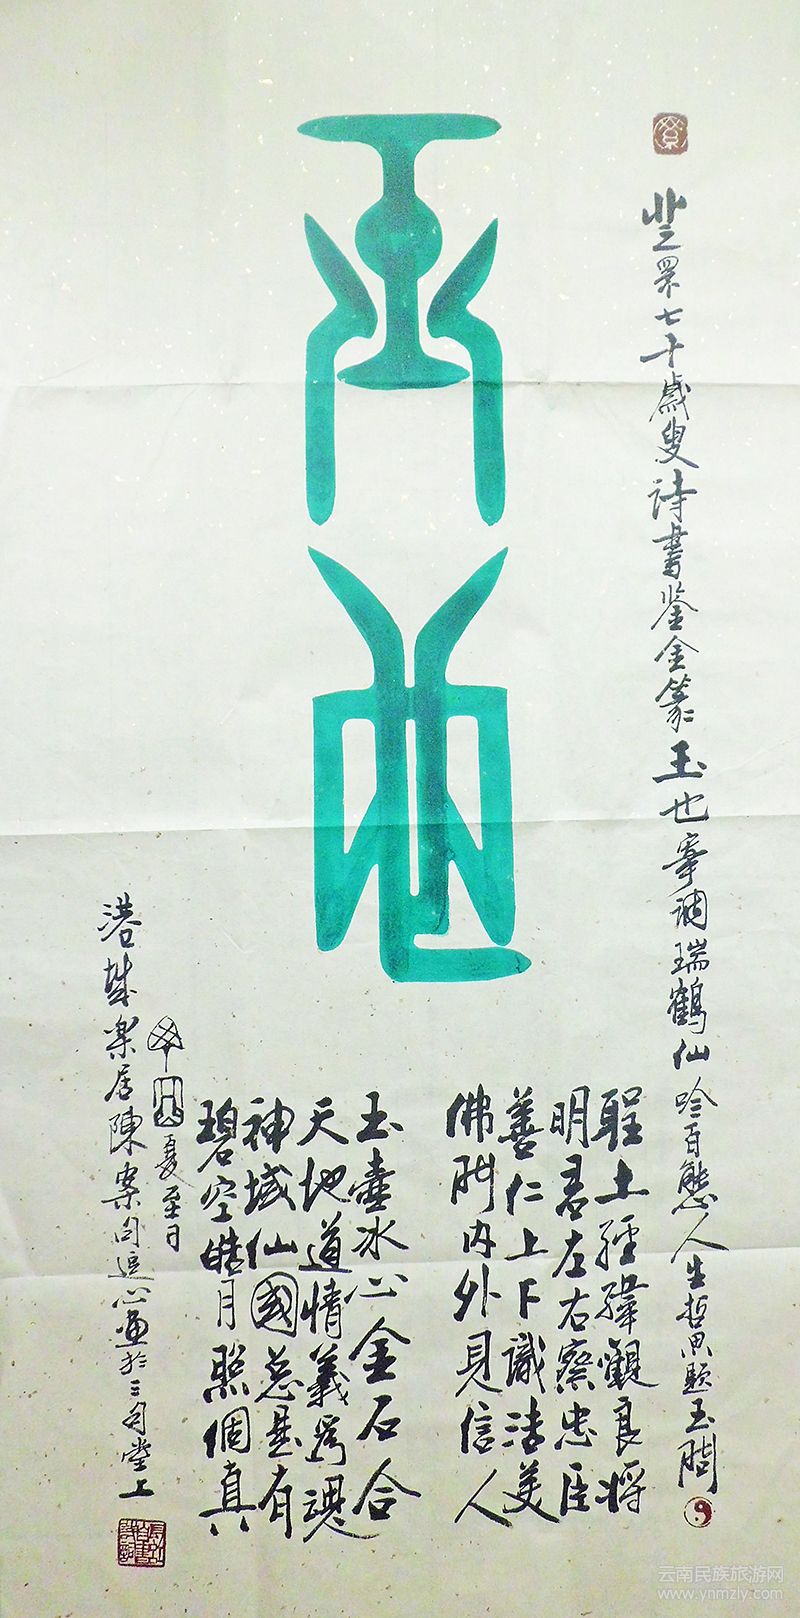 眾七十歲叟诗書鉴金篆玉也寄调瑞鶴仙吟百態人生哲思题玉閗
聖土經緯觀良将
明君左右察忠臣
善仁上下識法美
佛門内外見信人
玉壺冰心金石合
天地道情義為魂
神域仙國慈基有
碧空皓月照個真
夏至日
港城楽居陳案句追心画於三句堂上
云南民族旅游网
www.ynmzly.com